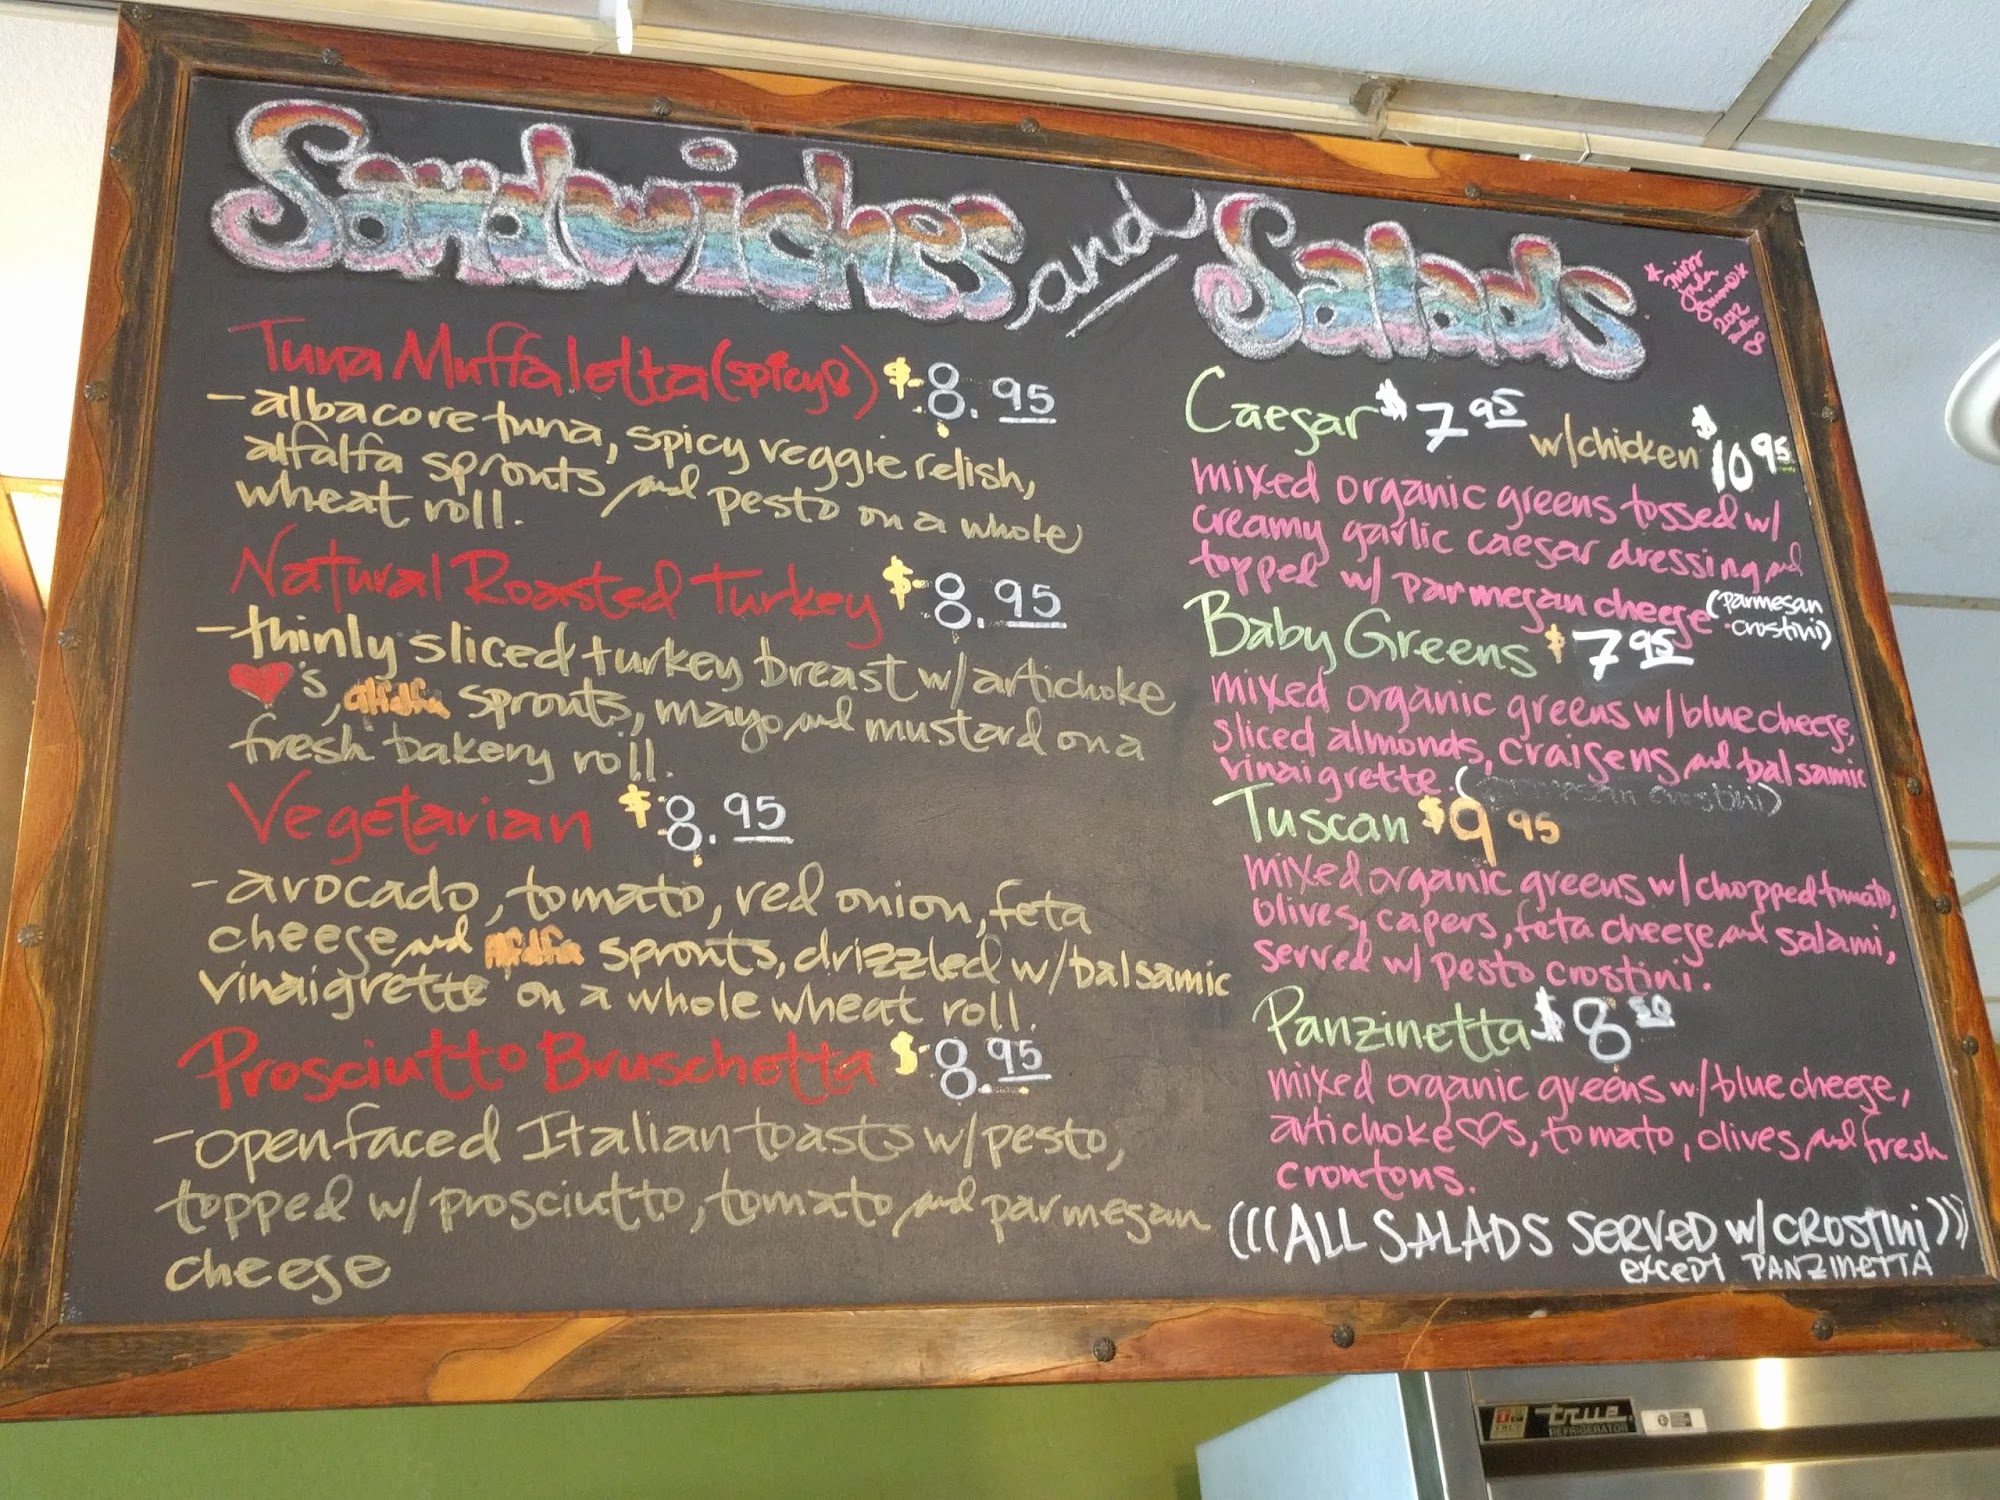 Sandwiches and Salads
Tuna Muffaletta (spicy8) $8.95
-albacore tuna, spicy veggie relish,
alfalfa sprouts and pesto on a whole
wheat roll.
Natural Roasted Turkey $8.95
-thinly sliced turkey breast w/artichoke
♥'s, alfalfa sprouts, mayo and mustard on a
fresh bakery roll.
Vegetarian $8.95
-avocado, tomato, red onion, feta
cheese and Alfalfa sprouts, drizzled w/balsamic
vinaigrette on a whole wheat roll.
Prosciutto Bruschetta $8.95
-open faced Italian toasts w/pesto,
topped w/prosciutto, tomato, and parmesan
cheese
*miss
2012
Caesar $7 95 w/chicken $10 95
mixed organic greens tossed w/
creamy garlic caesar dressing and
topped w/ parmesan cheese (parmesan
crostini)
Baby Greens $7 95
mixed organic greens w/blue cheese,
sliced almonds, craisens, and balsamic
vinaigrette. (parmesan crostini)
Tuscan $9 95
mixed organic greens w/chopped tomato,
olives, capers, feta cheese and salami,
served w/ pesto crostini.
Panzinetta $8 50
mixed organic greens w/blue cheese,
artichoke ♡s, tomato, olives and fresh
croutons.
(((ALL SALADS SERVED w/CROSTINI)))
except PANZINETTA
true
REFRIGERATOR